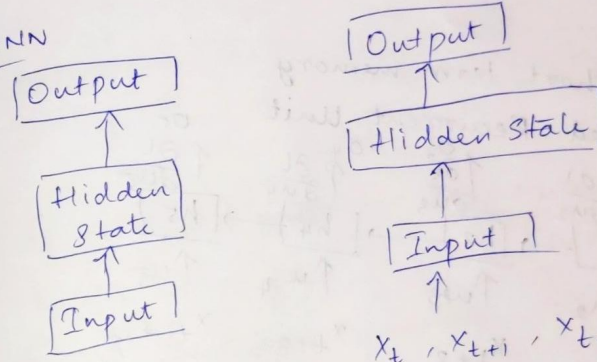 NN
Output
Hidden
State
Input
Output
Hidden State
Input
x_t , x_{t+1} , x_t